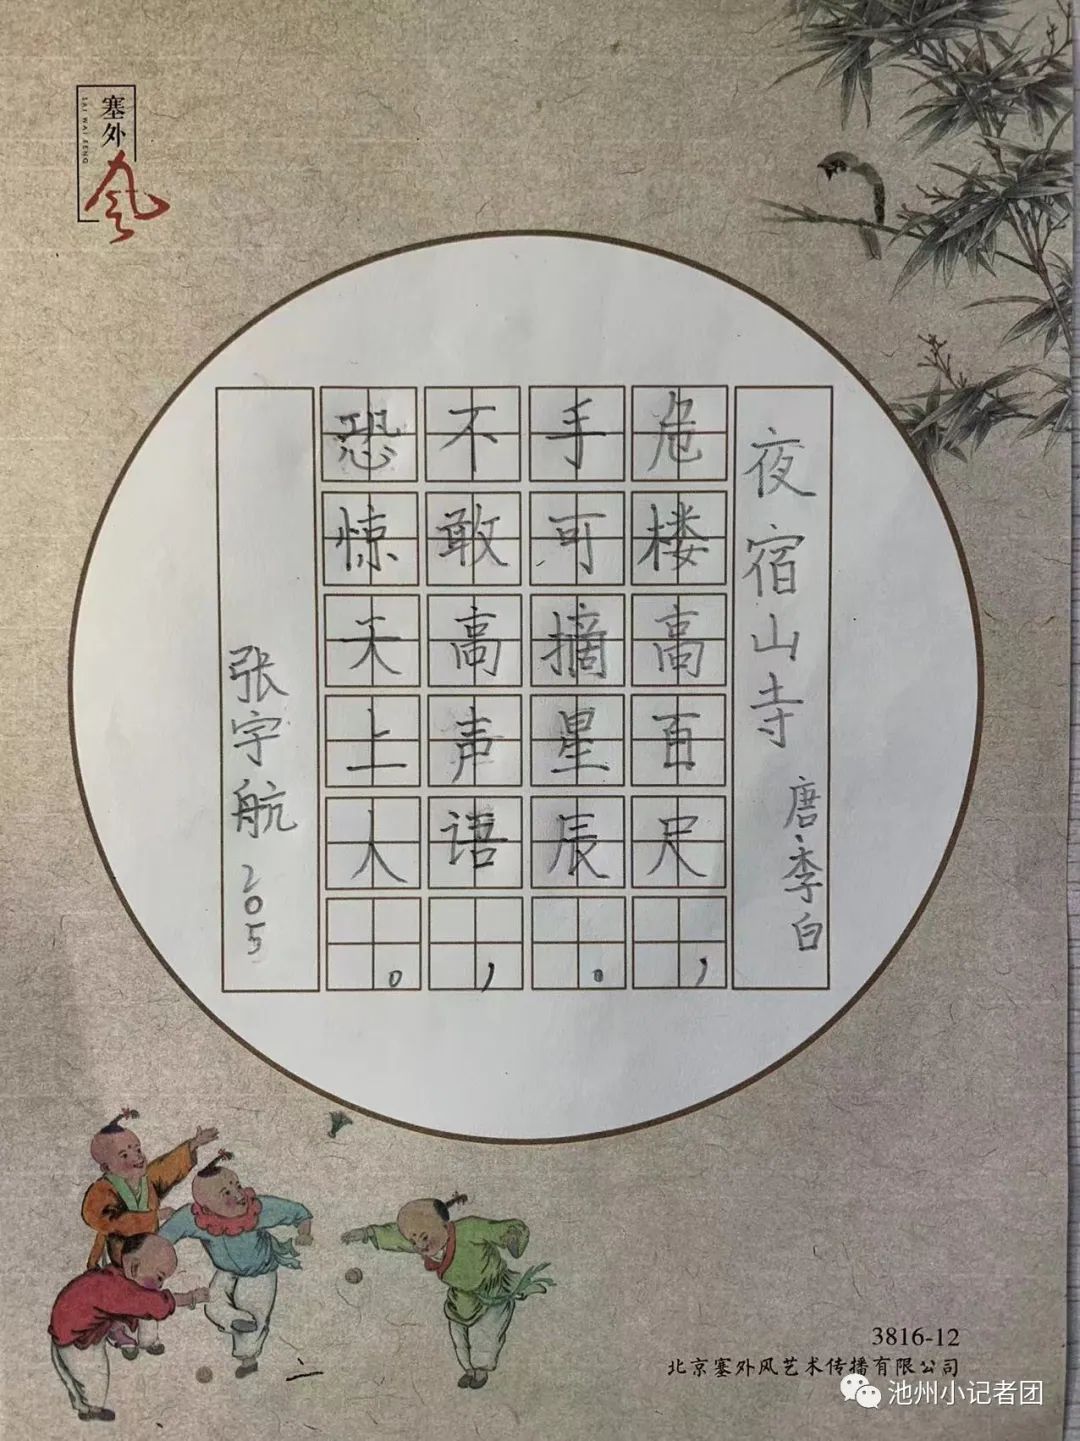 塞外风
SAI WAI FENG
夜宿山寺
唐·李白
危楼高百尺，
手可摘星辰。
不敢高声语，
恐惊天上人。
张宇航 205
3816-12
北京塞外风艺术传播有限公司
池州小记者团